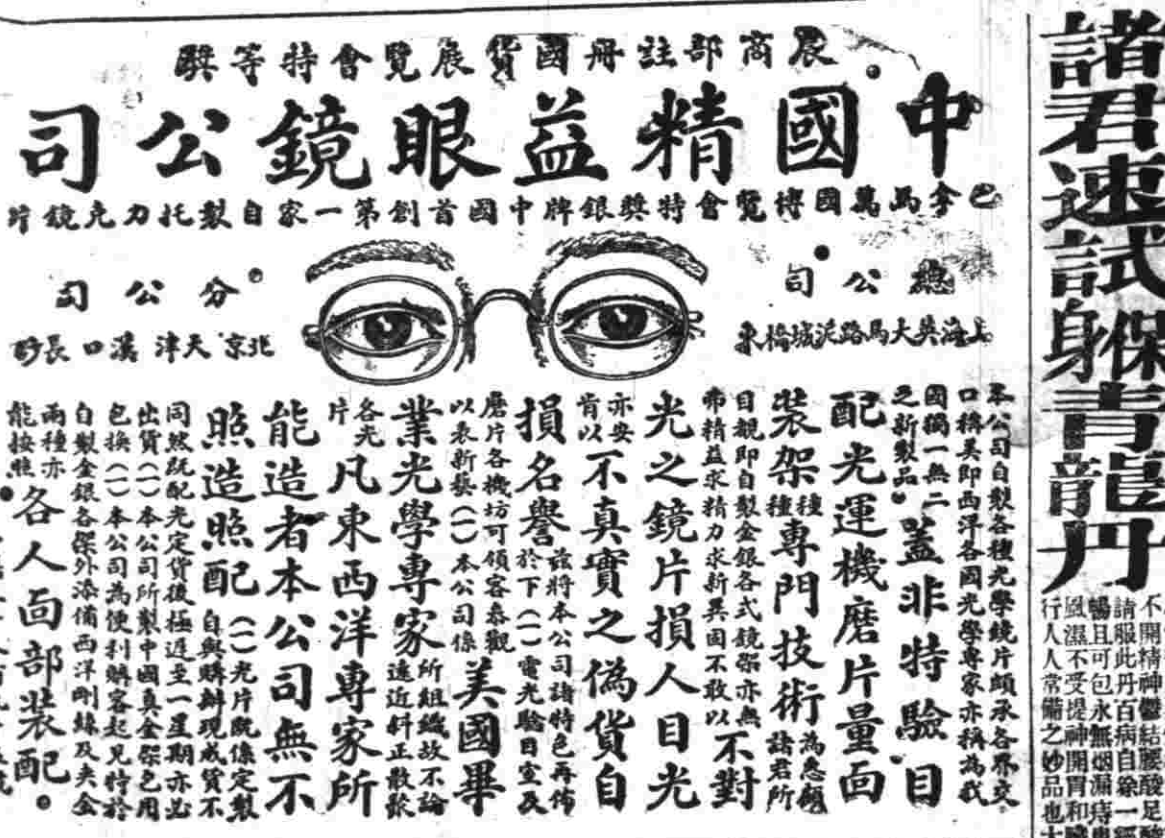 農商部註冊國貨展覽會特等獎
中國精益眼鏡公司
巴拿馬萬國博覽會特獎銀牌中國首創第一家自製托力克鏡片
總公司
上海英大馬路泥城橋東
分公司
北京 天津 漢口 長沙
本公司自製各種光學鏡片頗承各界交
口稱美即西洋各國光學專家亦稱為我
國獨一無二之新製品。蓋非特驗目
配光運機磨片量面
裝架種種專門技術為悉顧諸君所
目覩即自製金銀各式鏡架亦無
弗精益求精力求新異固不敢以不對
光之鏡片損人目光
亦安肯以不真實之偽貨自
損名譽茲將本公司諸特色再佈於下(一)電光驗目室及
磨片各機坊可領客參觀以表新藝(一)本公司係美國畢
業光學專家所組織故不論遠近斜正散聚
各光片凡東西洋專家所
能造者本公司無不
照造照配(一)光片既係定製自與購辦現成貨不
同然既配光定貨後極遲至一星期亦必
出貨(一)本公司所製中國真金架包用
包換(一)本公司為便利購客起見特於
自製金銀各架外添備西洋剛絲及夾金
兩種亦能按照各人面部裝配。
諸君速試保身青龍丹
不開精神鬱結腰酸足
請服此丹百病自除一
暢且可包永無烟漏痔
風濕不受提神開胃和
行人人常備之妙品也